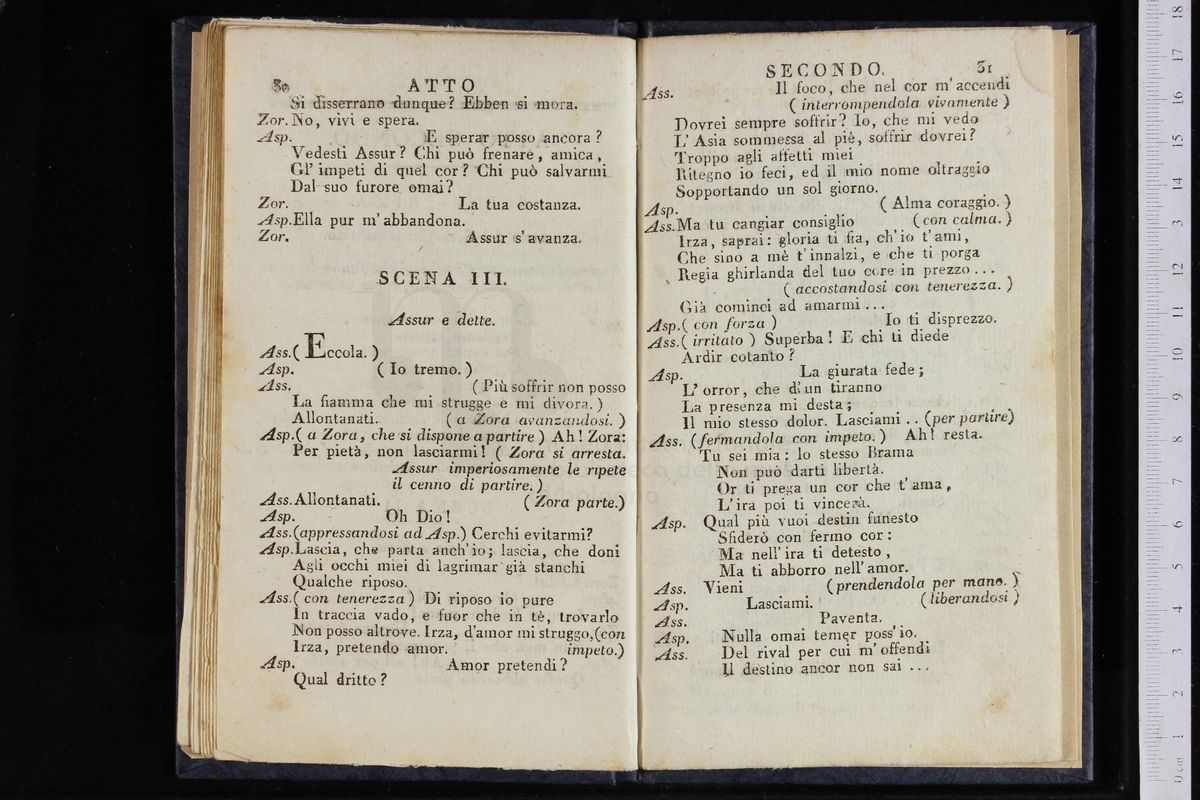 30 ATTO
Si disserrano dunque? Ebben si mora.
Zor. No, vivi e spera.
Asp. E sperar posso ancora?
Vedesti Assur? Chi può frenare, amica,
Gl' impeti di quel cor? Chi può salvarmi
Dal suo furore omai?
Zor. La tua costanza.
Asp. Ella pur m' abbandona.
Zor. Assur s' avanza.
SCENA III.
Assur e dette.
Ass. ( Eccola. )
Asp. ( Io tremo. )
Ass. ( Più soffrir non posso
La fiamma che mi strugge e mi divora. )
Allontanati. ( a Zora avanzandosi. )
Asp. ( a Zora, che si dispone a partire ) Ah! Zora:
Per pietà, non lasciarmi! ( Zora si arresta.
Assur imperiosamente le ripete
il cenno di partire. )
Ass. Allontanati. ( Zora parte.)
Asp. Oh Dio!
Ass. (appressandosi ad Asp.) Cerchi evitarmi?
Asp. Lascia, che parta anch' io; lascia, che doni
Agli occhi miei di lagrimar già stanchi
Qualche riposo.
Ass. ( con tenerezza ) Di riposo io pure
In traccia vado, e fuor che in tè, trovarlo
Non posso altrove. Irza, d'amor mi struggo, (con
Irza, pretendo amor. impeto.)
Asp. Amor pretendi?
Qual dritto?
SECONDO. 31
Ass. Il foco, che nel cor m' accendi
( interrompendola vivamente )
Dovrei sempre soffrir? Io, che mi vedo
L' Asia sommessa al piè, soffrir dovrei?
Troppo agli affetti miei
Ritegno io feci, ed il mio nome oltraggio
Sopportando un sol giorno.
Asp. ( Alma coraggio. )
Ass. Ma tu cangiar consiglio ( con calma. )
Irza, saprai: gloria ti fia, ch' io t' ami,
Che sino a mè t' innalzi, e che ti porga
Regia ghirlanda del tuo core in prezzo ...
( accostandosi con tenerezza. )
Già cominci ad amarmi ...
Asp. ( con forza ) Io ti disprezzo.
Ass. ( irritato ) Superba! E chi ti diede
Ardir cotanto?
Asp. La giurata fede;
L' orror, che d' un tiranno
La presenza mi desta;
Il mio stesso dolor. Lasciami .. (per partire)
Ass. (fermandola con impeto.) Ah! resta.
Tu sei mia: lo stesso Brama
Non può darti libertà.
Or ti prega un cor che t' ama,
L' ira poi ti vincerà.
Asp. Qual più vuoi destin funesto
Sfiderò con fermo cor:
Ma nell' ira ti detesto,
Ma ti abborro nell' amor.
Ass. Vieni (prendendola per mano. )
Asp. Lasciami. ( liberandosi )
Ass. Paventa.
Asp. Nulla omai temer poss' io.
Ass. Del rival per cui m' offendi
Il destino ancor non sai ...